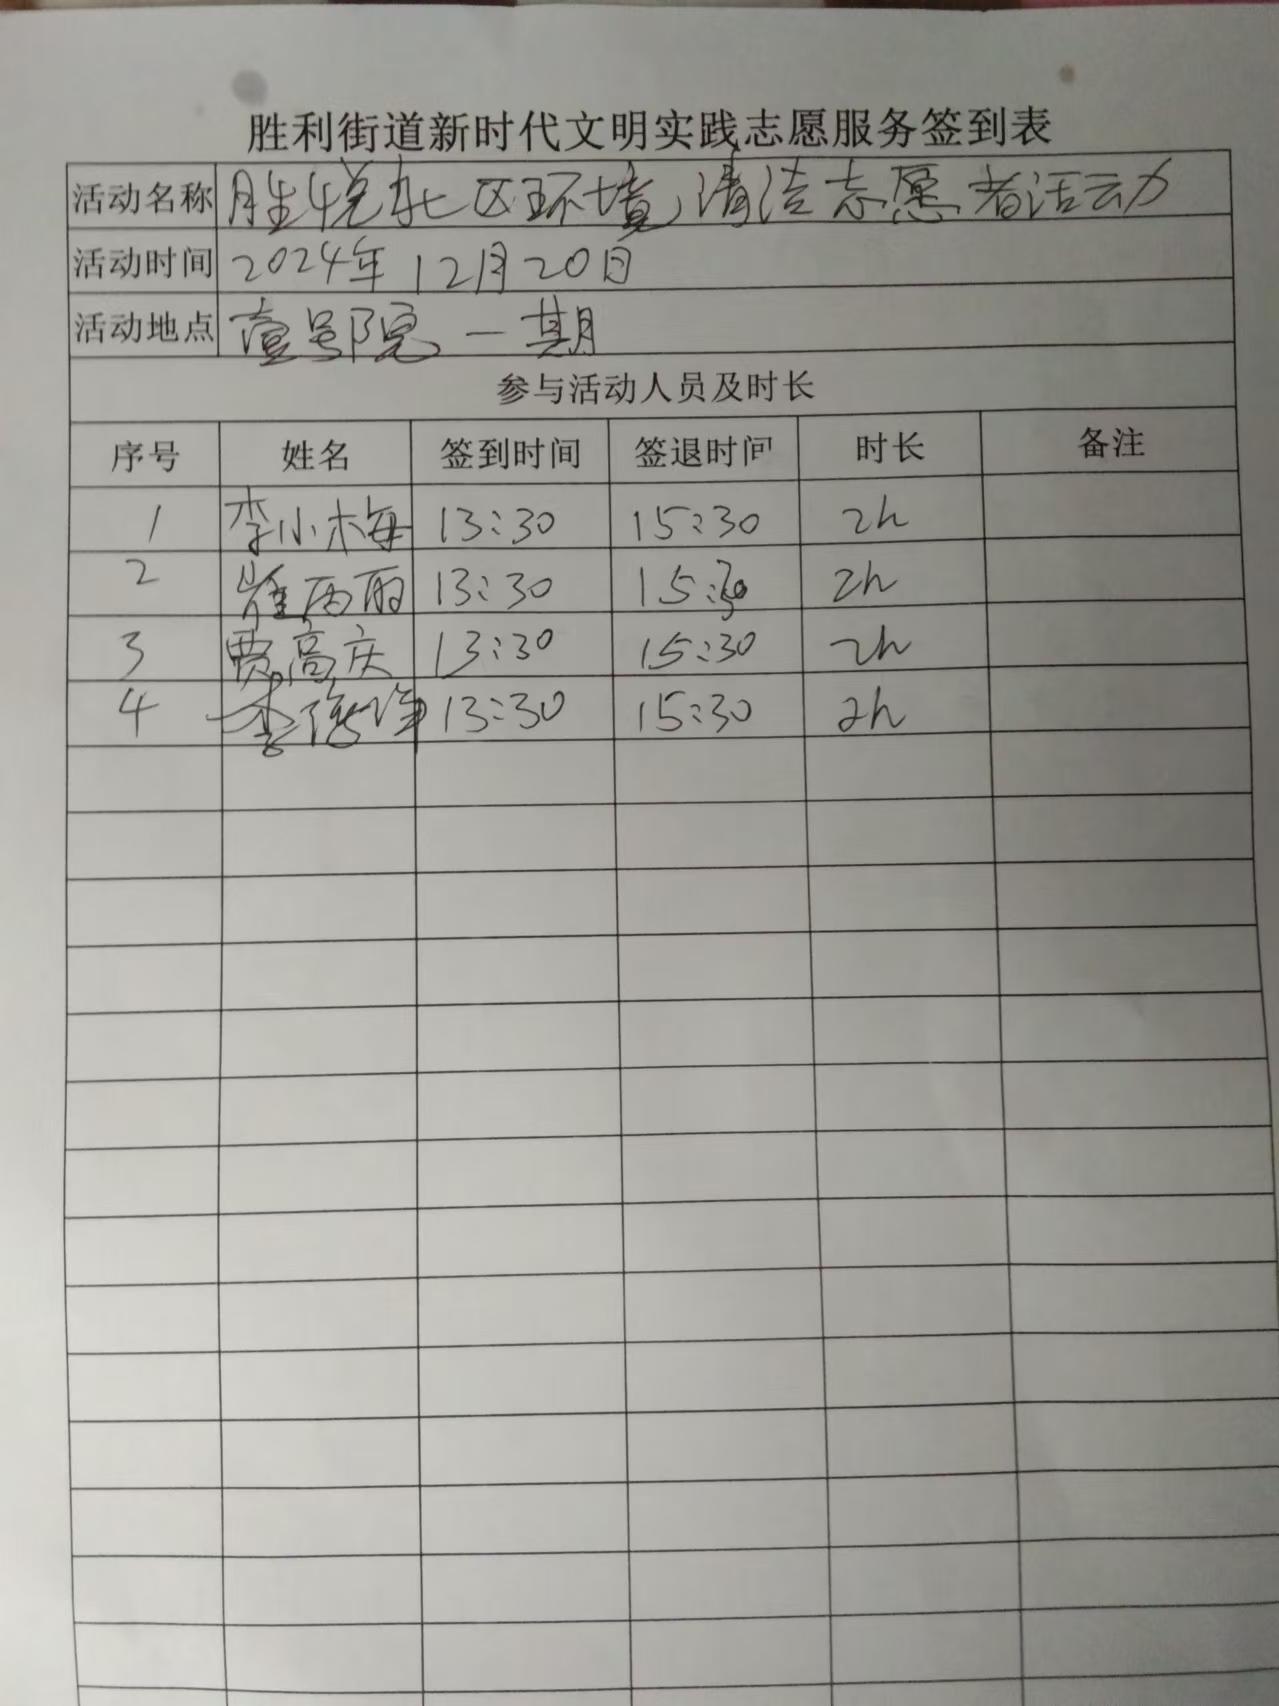 胜利街道新时代文明实践志愿服务签到表
活动名称 胜悦社区环境清洁志愿者活动
活动时间 2024年12月20日
活动地点 壹号院一期
参与活动人员及时长
序号 姓名 签到时间 签退时间 时长 备注
1 李小梅 13:30 15:30 2h
2 崔丙丽 13:30 15:30 2h
3 贾高庆 13:30 15:30 2h
4 李 13:30 15:30 2h